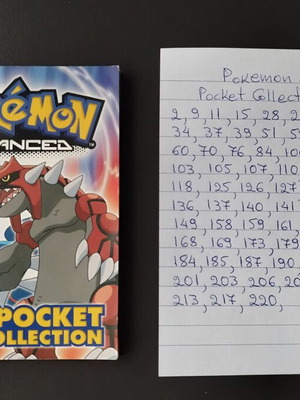 okémon
ANCED™
POCKET
OLLECTION
Pokemon
Pocket Collect
2, 9, 11, 15, 28,
34, 37, 39, 51,
60, 70, 76, 84,
103, 105, 107,
118, 125, 126,
136, 137, 140,
149, 158, 159, 161,
168, 169, 173,
184, 185, 187,
201, 203, 206,
213, 217, 220,